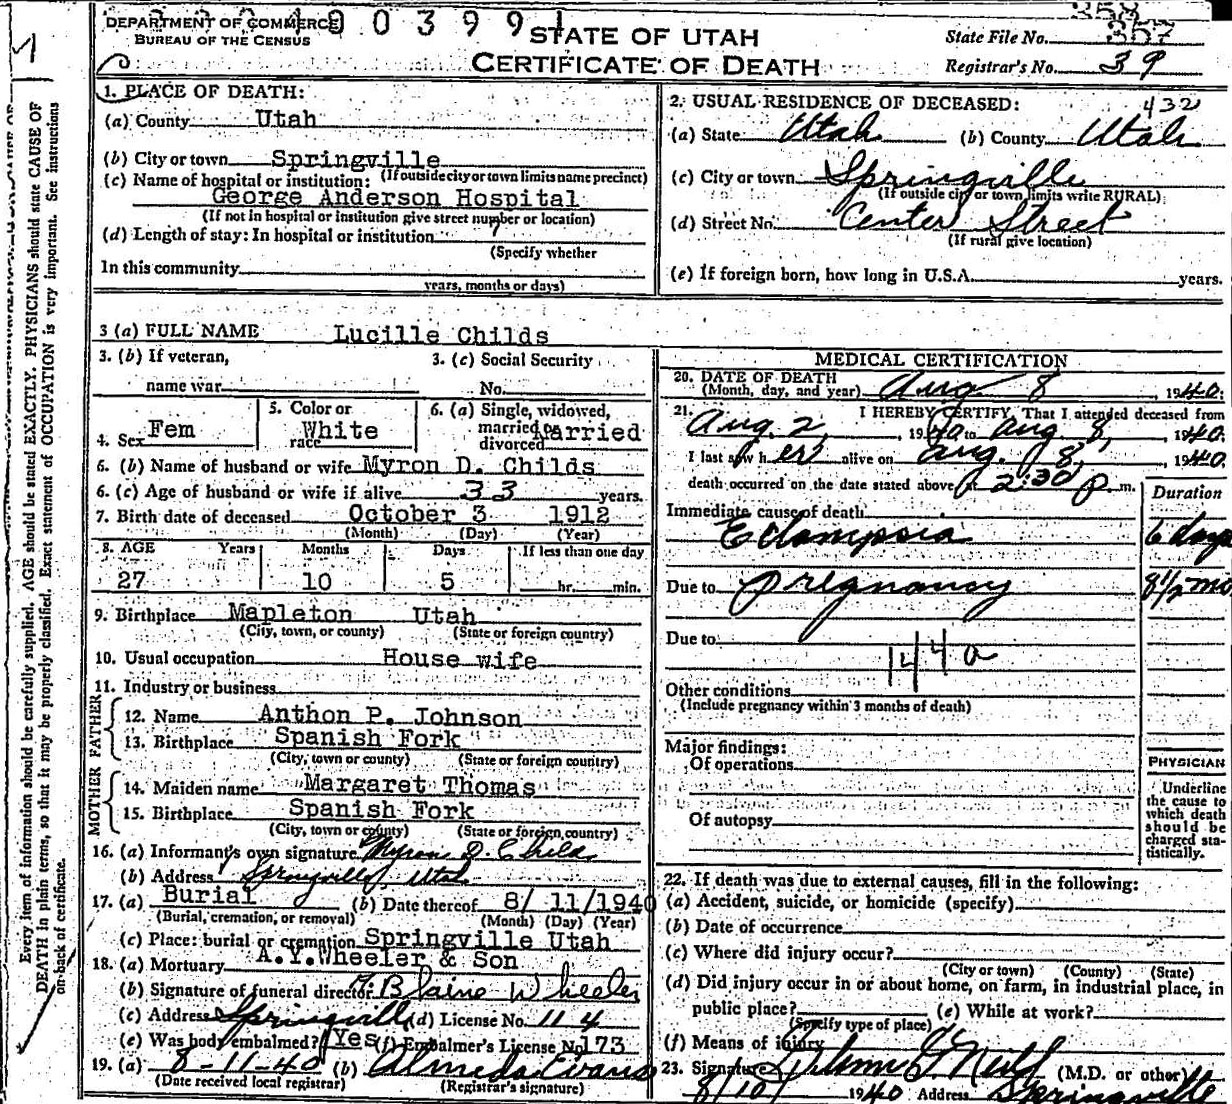 DEPARTMENT OF COMMERCE
BUREAU OF THE CENSUS
0 0 3 9 9 1
STATE OF UTAH
CERTIFICATE OF DEATH
358
State File No. 357
Registrar's No. 39
Every item of information should be carefully supplied. AGE should be stated EXACTLY. PHYSICIANS should state CAUSE OF
DEATH in plain terms, so that it may be properly classified. Exact statement of OCCUPATION is very important. See instructions
on back of certificate.
1. PLACE OF DEATH:
(a) County Utah
(b) City or town Springville
(If outside city or town limits name precinct)
(c) Name of hospital or institution:
George Anderson Hospital
(If not in hospital or institution give street number or location)
(d) Length of stay: In hospital or institution 7
(Specify whether
In this community
years, months or days)
2. USUAL RESIDENCE OF DECEASED: 432
(a) State Utah (b) County Utah
(c) City or town Springville
(If outside city or town limits write RURAL)
(d) Street No. Center Street
(If rural give location)
(e) If foreign born, how long in U.S.A. years.
3 (a) FULL NAME Lucille Childs
3. (b) If veteran,
name war
3. (c) Social Security
No.
4. Sex Fem
5. Color or
race White
6. (a) Single, widowed,
married or
divorced Married
6. (b) Name of husband or wife Myron D. Childs
6. (c) Age of husband or wife if alive 33 years.
7. Birth date of deceased October 3 1912
(Month) (Day) (Year)
8. AGE Years Months Days If less than one day
27 10 5 hr. min.
9. Birthplace Mapleton Utah
(City, town, or county) (State or foreign country)
10. Usual occupation House wife
11. Industry or business
FATHER
12. Name Anthon P. Johnson
13. Birthplace Spanish Fork
(City, town or county) (State or foreign country)
MOTHER
14. Maiden name Margaret Thomas
15. Birthplace Spanish Fork
(City, town or county) (State or foreign country)
16. (a) Informant's own signature Myron D. Childs
(b) Address Springville, Utah
17. (a) Burial (b) Date thereof 8/ 11/1940
(Burial, cremation, or removal) (Month) (Day) (Year)
(c) Place: burial or cremation Springville Utah
18. (a) Mortuary A.Y.Wheeler & Son
(b) Signature of funeral director Blaine Wheeler
(c) Address Springville (d) License No. 114
(e) Was body embalmed? Yes (f) Embalmer's License No 173
19. (a) 8-11-40 (b) Almeda Evans
(Date received local registrar) (Registrar's signature)
MEDICAL CERTIFICATION
20. DATE OF DEATH
(Month, day, and year) Aug 8, 1940.
21. I HEREBY CERTIFY, That I attended deceased from
Aug. 2, 1940 to Aug 8, 1940.
I last saw her alive on Aug. 8, 1940.
death occurred on the date stated above at 2:30 P. m.
Duration
Immediate cause of death
Eclampsia 6 days
Due to pregnancy 8 1/2 mo
Due to
144a
Other conditions
(Include pregnancy within 3 months of death)
Major findings:
Of operations
Of autopsy
PHYSICIAN
Underline
the cause to
which death
should be
charged sta-
tistically.
22. If death was due to external causes, fill in the following:
(a) Accident, suicide, or homicide (specify)
(b) Date of occurrence
(c) Where did injury occur?
(City or town) (County) (State)
(d) Did injury occur in or about home, on farm, in industrial place, in
public place? (e) While at work?
(Specify type of place)
(f) Means of injury
23. Signature (M.D. or other)
8/10/ 1940 Address Springville